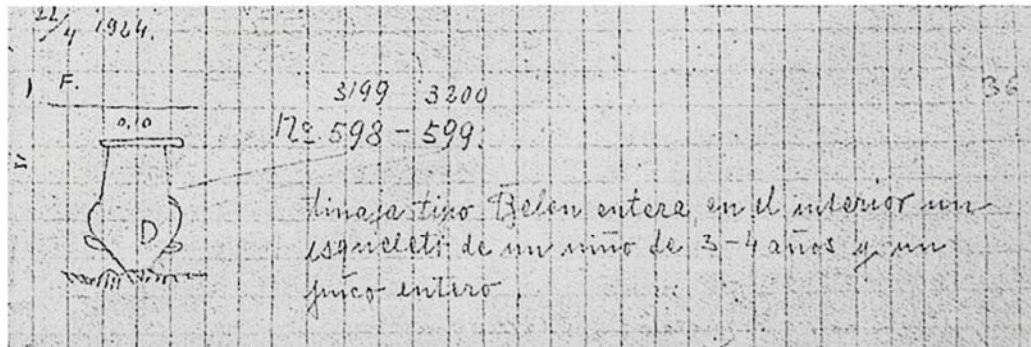 22/4 1924.
F.
3199 3200
36
0,10
Nº 598 - 599.
D
tinaja tipo Belen entera, en el interior un
esqueleti de un niño de 3-4 años y un
puco entero.